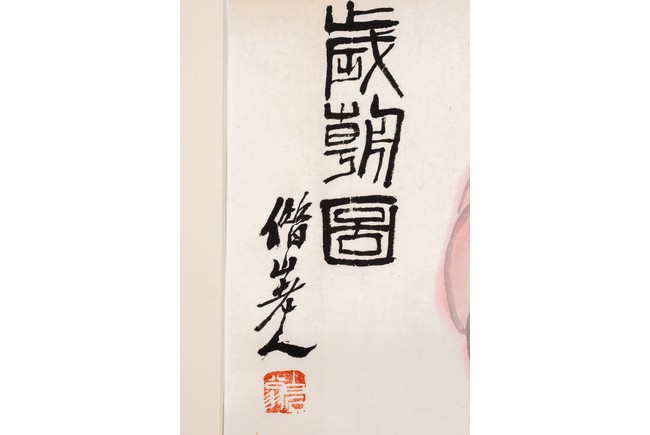 歲朝圖
借山老人